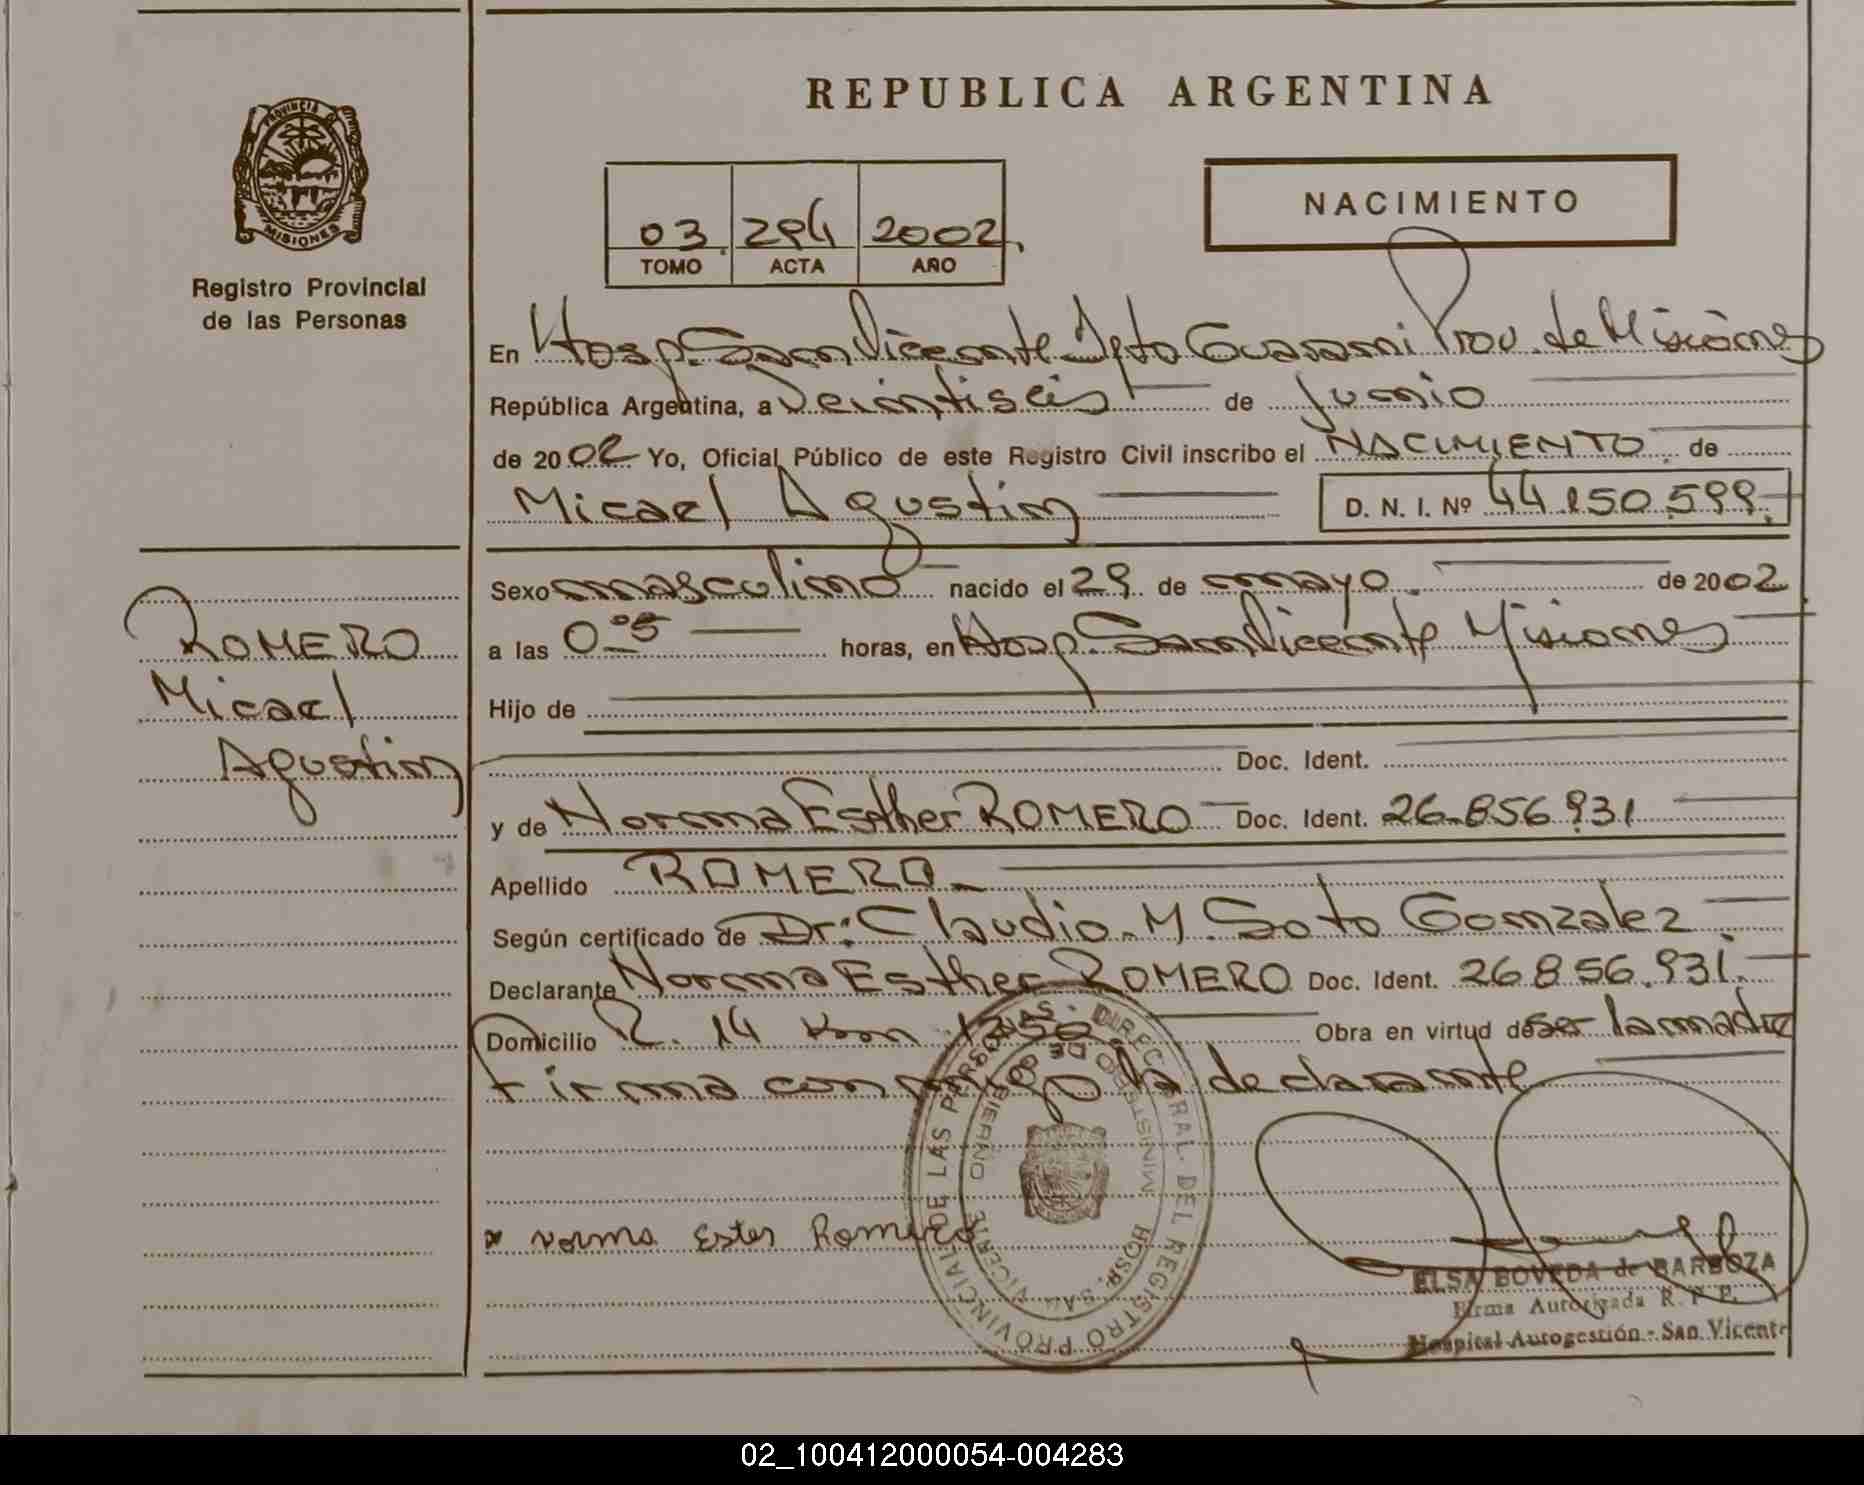 REPUBLICA ARGENTINA
PROVINCIA DE
MISIONES
Registro Provincial
de las Personas
03 294 2002
TOMO ACTA AÑO
NACIMIENTO
En Hosp. San Vicente Dpto Guarani Prov. de Misiones
República Argentina, a Veintiseis de Junio
de 2002 Yo, Oficial Público de este Registro Civil inscribo el NACIMIENTO de
Micael Agustin D. N. I. Nº 44.150.599
Sexo masculino nacido el 29 de mayo de 2002
a las 0:05 horas, en Hosp. San Vicente Misiones
Hijo de
Doc. Ident.
y de Norma Esther ROMERO Doc. Ident. 26.856.931
Apellido ROMERO
Según certificado de Dr: Claudio M Soto Gonzalez
Declarante Norma Esther ROMERO Doc. Ident. 26.856.931
Domicilio R. 14 Km 1250 Obra en virtud de ser la madre
Firma conmigo la declarante
ROMERO
Micael
Agustin
x norma Ester Romero
DIREC. GRAL. DEL REGISTRO PROVINCIAL DE LAS PERSONAS
MINISTERIO DE GOBIERNO
HOSP. SAN VICENTE
ELSA BOVEDA de BARBOZA
Firma Autorizada R. P. P.
Hospital Autogestión - San Vicente
02_100412000054-004283